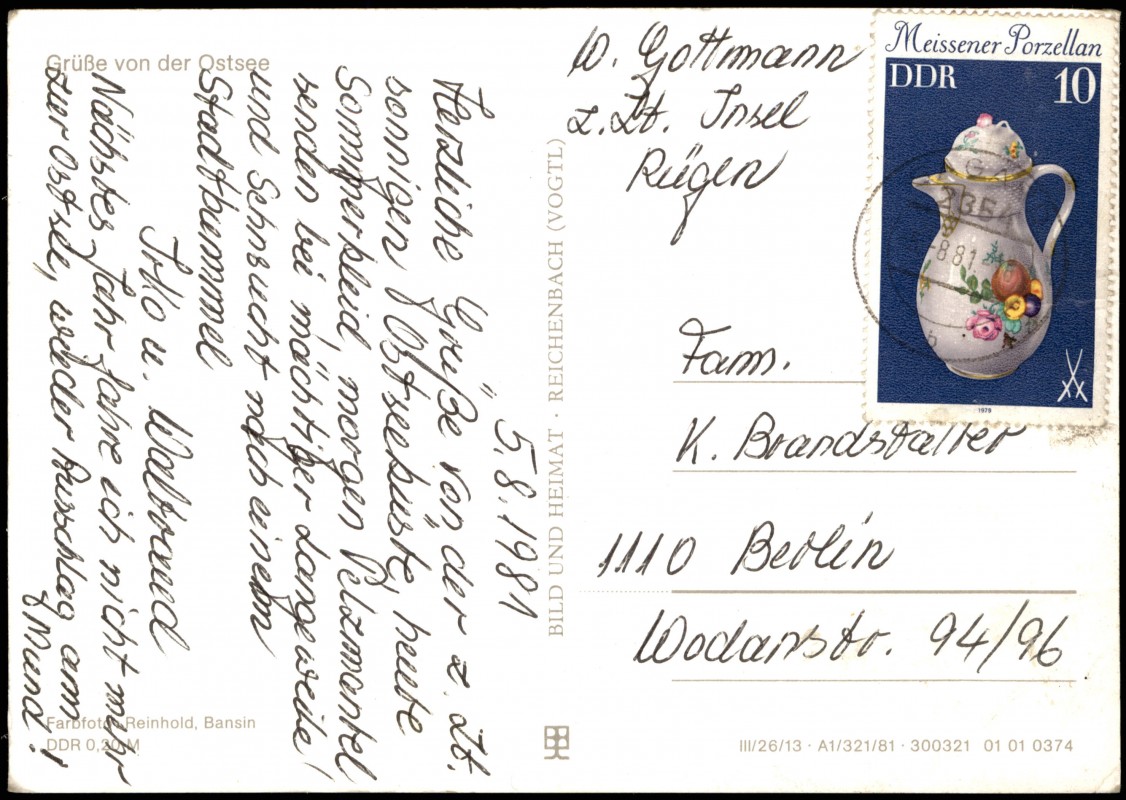 Grüße von der Ostsee
5.8.1981
Herzliche Grüße von der z. Zt.
sonnigen Ostseeküste, heute
Sommerkleid, morgen Pelzmantel
senden bei mächtiger Langeweile!
und Sehnsucht nach einem
Stadtbummel
Waltraud
Nächstes Jahr fahre ich nicht mehr
zur Ostsee, wieder Ausschlag am
Mund!
Farbfoto: Reinhold, Bansin
DDR 0,20 M
BILD UND HEIMAT · REICHENBACH (VOGTL)
W. Gottmann
z. Zt. Insel
Rügen
Meissener Porzellan
DDR
10
1979
-8 81
Fam.
K. Brandstatter
1110 Berlin
Wodanstr. 94/96
III/26/13 · A1/321/81 · 300321 01 01 0374